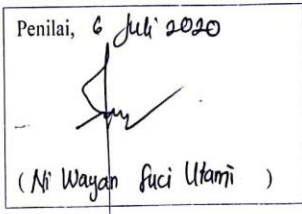 Penilai, 6 Juli 2020
(Ni Wayan Suci Utami )